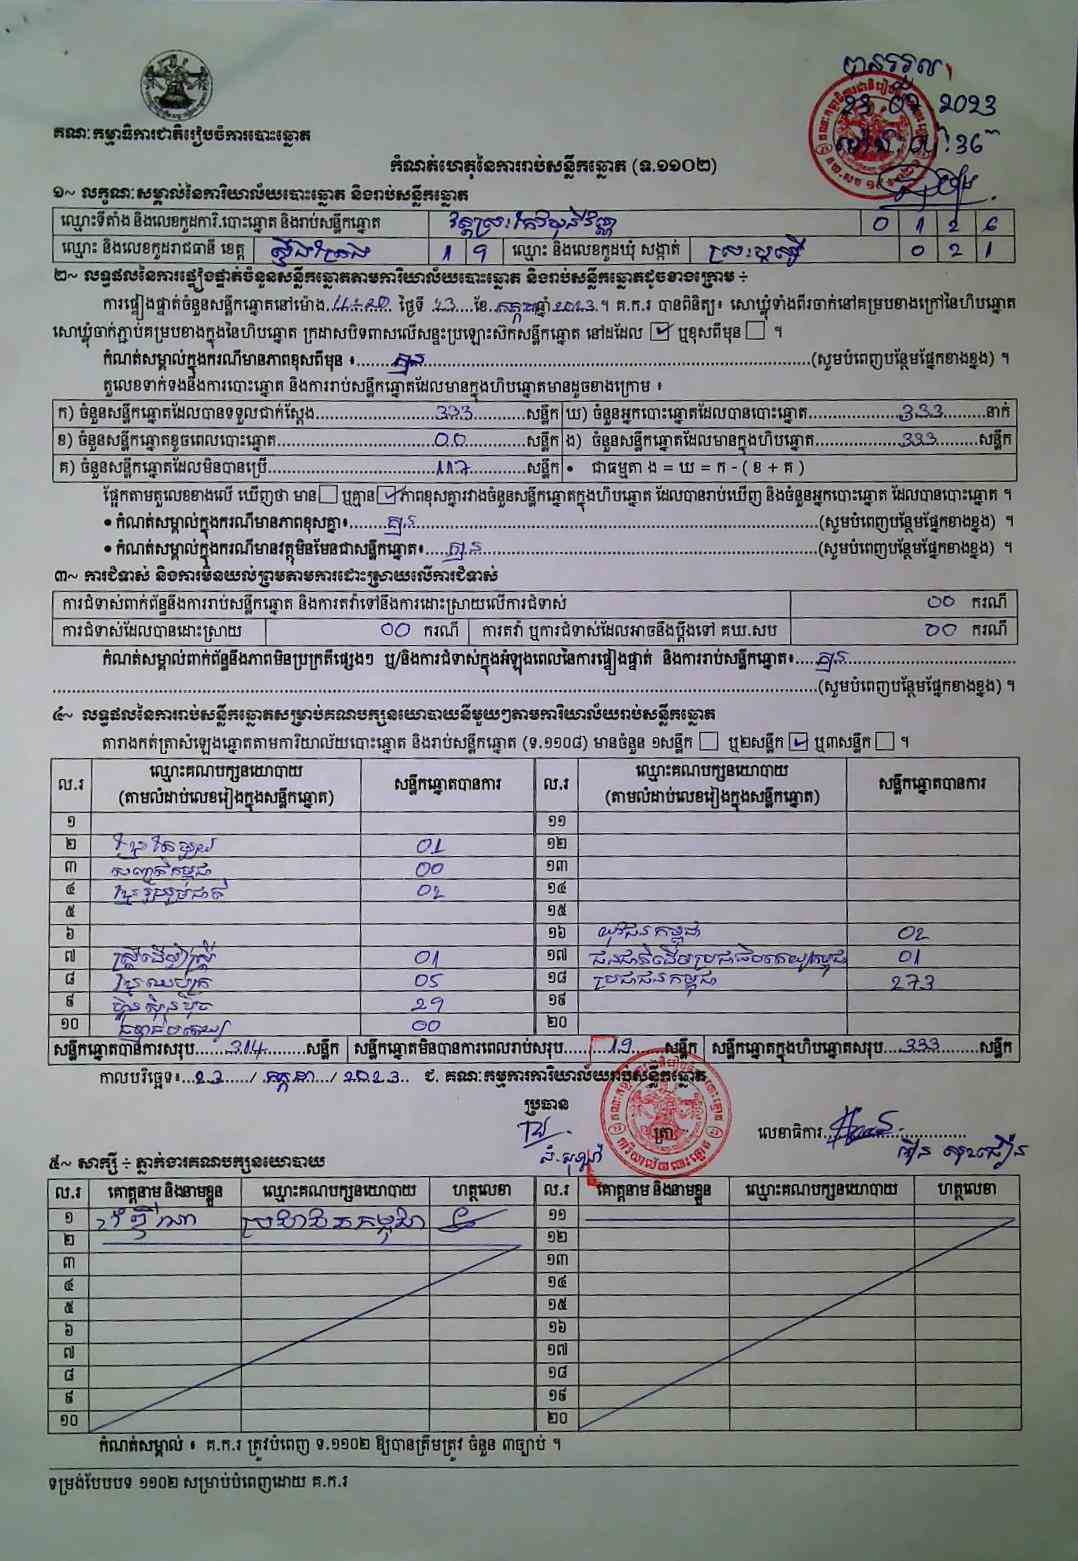 បានទទួល
23 07 2023
ម៉ោង:
គណៈកម្មាធិការជាតិរៀបចំការបោះឆ្នោត
កំណត់ហេតុនៃការរាប់សន្លឹកឆ្នោត (ទ.១១០២)
១~ លក្ខណៈសម្គាល់នៃការិយាល័យបោះឆ្នោត និងរាប់សន្លឹកឆ្នោត
ឈ្មោះទីតាំង និងលេខកូដការិ.បោះឆ្នោត និងរាប់សន្លឹកឆ្នោត 0 1 2 6
ឈ្មោះ និងលេខកូដរាជធានី ខេត្ត ស្ទឹងត្រែង 1 9 ឈ្មោះ និងលេខកូដឃុំ សង្កាត់ 0 2 1
២~ លទ្ធផលនៃការផ្ទៀងផ្ទាត់ចំនួនសន្លឹកឆ្នោតតាមការិយាល័យបោះឆ្នោត និងរាប់សន្លឹកឆ្នោតដូចខាងក្រោម ÷
ការផ្ទៀងផ្ទាត់ចំនួនសន្លឹកឆ្នោតនៅម៉ោង ថ្ងៃទី 23 ខែ កក្កដា ឆ្នាំ 2023 ។ គ.ក.រ បានពិនិត្យ៖ សោឃ្លុំទាំងពីរចាក់នៅគម្របខាងក្រៅនៃហិបឆ្នោត
សោឃ្លុំចាក់ភ្ជាប់គម្របខាងក្នុងនៃហិបឆ្នោត ក្រដាសបិទពាសលើសន្ទះប្រឡោះស៊កសន្លឹកឆ្នោត នៅដដែល ☑ ឬខុសពីមុន ☐ ។
កំណត់សម្គាល់ក្នុងករណីមានភាពខុសពីមុន ៖ គ្មាន (សូមបំពេញបន្ថែមផ្នែកខាងខ្នង) ។
តួលេខទាក់ទងនឹងការបោះឆ្នោត និងការរាប់សន្លឹកឆ្នោតដែលមានក្នុងហិបឆ្នោតមានដូចខាងក្រោម ៖
ក) ចំនួនសន្លឹកឆ្នោតដែលបានទទួលជាក់ស្តែង សន្លឹក ឃ) ចំនួនអ្នកបោះឆ្នោតដែលបានបោះឆ្នោត 333 នាក់
ខ) ចំនួនសន្លឹកឆ្នោតខូចពេលបោះឆ្នោត 00 សន្លឹក ង) ចំនួនសន្លឹកឆ្នោតដែលមានក្នុងហិបឆ្នោត 333 សន្លឹក
គ) ចំនួនសន្លឹកឆ្នោតដែលមិនបានប្រើ 117 សន្លឹក • ជាធម្មតា ង = ឃ = ក - ( ខ + គ )
ផ្អែកតាមតួលេខខាងលើ ឃើញថា មាន ☐ ឬគ្មាន ☑ ភាពខុសគ្នារវាងចំនួនសន្លឹកឆ្នោតក្នុងហិបឆ្នោត ដែលបានរាប់ឃើញ និងចំនួនអ្នកបោះឆ្នោត ដែលបានបោះឆ្នោត ។
• កំណត់សម្គាល់ក្នុងករណីមានភាពខុសគ្នា៖ គ្មាន (សូមបំពេញបន្ថែមផ្នែកខាងខ្នង) ។
• កំណត់សម្គាល់ក្នុងករណីមានវត្ថុមិនមែនជាសន្លឹកឆ្នោត៖ គ្មាន (សូមបំពេញបន្ថែមផ្នែកខាងខ្នង) ។
៣~ ការជំទាស់ និងការមិនយល់ព្រមតាមការដោះស្រាយលើការជំទាស់
ការជំទាស់ពាក់ព័ន្ធនឹងការរាប់សន្លឹកឆ្នោត និងការតវ៉ាទៅនឹងការដោះស្រាយលើការជំទាស់ 00 ករណី
ការជំទាស់ដែលបានដោះស្រាយ 00 ករណី ការតវ៉ា ឬការជំទាស់ដែលអាចនឹងប្តឹងទៅ គឃ.សប 00 ករណី
កំណត់សម្គាល់ពាក់ព័ន្ធនឹងភាពមិនប្រក្រតីផ្សេងៗ ឬ/និងការជំទាស់ក្នុងអំឡុងពេលនៃការផ្ទៀងផ្ទាត់ និងការរាប់សន្លឹកឆ្នោត៖ គ្មាន
(សូមបំពេញបន្ថែមផ្នែកខាងខ្នង) ។
៤~ លទ្ធផលនៃការរាប់សន្លឹកឆ្នោតសម្រាប់គណបក្សនយោបាយនីមួយៗតាមការិយាល័យរាប់សន្លឹកឆ្នោត
តារាងកត់ត្រាសំឡេងឆ្នោតតាមការិយាល័យបោះឆ្នោត និងរាប់សន្លឹកឆ្នោត (ទ.១១០៨) មានចំនួន ១សន្លឹក ☐ ឬ២សន្លឹក ☑ ឬ៣សន្លឹក ☐ ។
ល.រ ឈ្មោះគណបក្សនយោបាយ (តាមលំដាប់លេខរៀងក្នុងសន្លឹកឆ្នោត) សន្លឹកឆ្នោតបានការ ល.រ ឈ្មោះគណបក្សនយោបាយ (តាមលំដាប់លេខរៀងក្នុងសន្លឹកឆ្នោត) សន្លឹកឆ្នោតបានការ
១ ១១
២ ខ្មែរតែមួយ 01 ១២
៣ សញ្ជាតិកម្ពុជា 00 ១៣
៤ ខ្មែររួបរួមជាតិ 02 ១៤
៥ ១៥
៦ ១៦ យុវជនកម្ពុជា 02
៧ ស្ត្រីដើម្បីស្ត្រី 01 ១៧ ជនជាតិដើមប្រជាធិបតេយ្យកម្ពុជា 01
៨ 05 ១៨ ប្រជាជនកម្ពុជា 273
៩ ហ៊្វុនស៊ិនប៉ិច 29 ១៩
១០ 00 ២០
សន្លឹកឆ្នោតបានការសរុប 314 សន្លឹក សន្លឹកឆ្នោតមិនបានការពេលរាប់សរុប 19 សន្លឹក សន្លឹកឆ្នោតក្នុងហិបឆ្នោតសរុប 333 សន្លឹក
កាលបរិច្ឆេទ៖ 23 / កក្កដា / 2023 ជ. គណៈកម្មការការិយាល័យរាប់សន្លឹកឆ្នោត
ប្រធាន
ត្រា
លេខាធិការ
៥~ សាក្សី ÷ ភ្នាក់ងារគណបក្សនយោបាយ
ល.រ គោត្តនាម និងនាមខ្លួន ឈ្មោះគណបក្សនយោបាយ ហត្ថលេខា ល.រ គោត្តនាម និងនាមខ្លួន ឈ្មោះគណបក្សនយោបាយ ហត្ថលេខា
១ ប្រជាជនកម្ពុជា ១១
២ ១២
៣ ១៣
៤ ១៤
៥ ១៥
៦ ១៦
៧ ១៧
៨ ១៨
៩ ១៩
១០ ២០
កំណត់សម្គាល់ ៖ គ.ក.រ ត្រូវបំពេញ ទ.១១០២ ឱ្យបានត្រឹមត្រូវ ចំនួន ៣ច្បាប់ ។
ទម្រង់បែបបទ ១១០២ សម្រាប់បំពេញដោយ គ.ក.រ